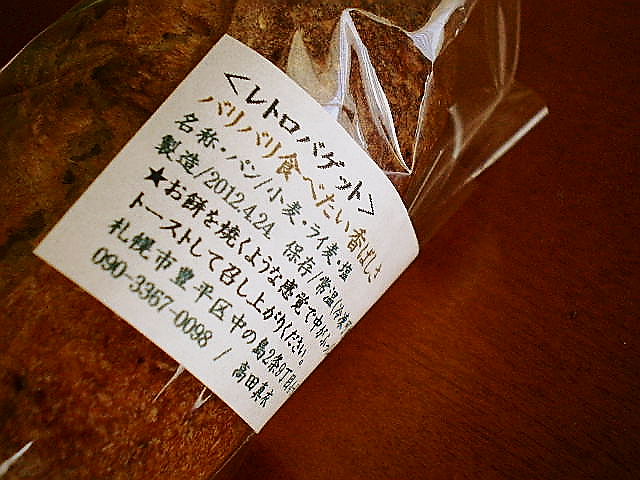 <レトロバゲット>
バリバリ食べたい香ばしさ
名称・パン/小麦・ライ麦・塩
製造/2012.4.24 保存/常温(冷凍
★お餅を焼くような感覚で中がふっ
トーストして召し上がりください。
札幌市豊平区中の島2条9丁目
090-3367-0098 / 高田真衣